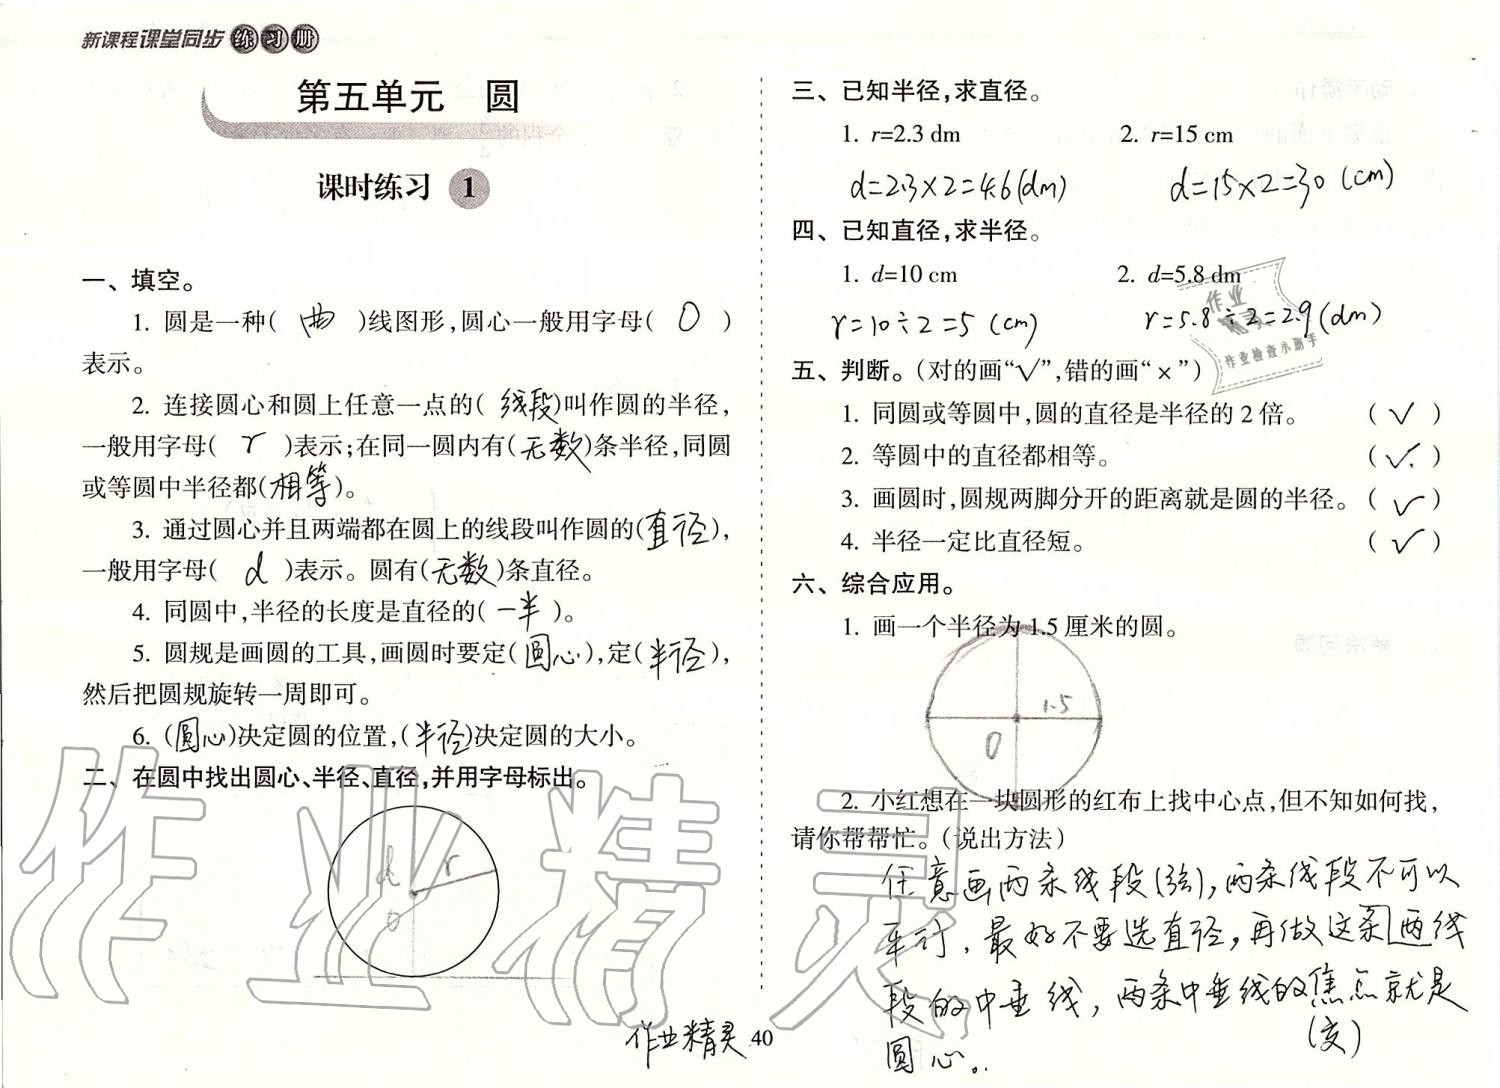 新课程课堂同步练习册
第五单元 圆
课时练习 1
一、填空。
1. 圆是一种( 曲 )线图形,圆心一般用字母( O )
表示。
2. 连接圆心和圆上任意一点的( 线段)叫作圆的半径,
一般用字母( r )表示;在同一圆内有(无数)条半径,同圆
或等圆中半径都(相等)。
3. 通过圆心并且两端都在圆上的线段叫作圆的(直径),
一般用字母( d )表示。圆有(无数)条直径。
4. 同圆中,半径的长度是直径的( 一半 )。
5. 圆规是画圆的工具,画圆时要定(圆心),定(半径),
然后把圆规旋转一周即可。
6. (圆心)决定圆的位置,(半径)决定圆的大小。
二、在圆中找出圆心、半径、直径,并用字母标出。
d r
O
作业精灵
作业精灵 40
三、已知半径,求直径。
1. r=2.3 dm 2. r=15 cm
d=2.3×2=4.6(dm) d=15×2=30(cm)
四、已知直径,求半径。
1. d=10 cm 2. d=5.8 dm
r=10÷2=5(cm) r=5.8÷2=2.9(dm)
作业
作业检查小助手
五、判断。(对的画“√”,错的画“×”)
1. 同圆或等圆中,圆的直径是半径的 2 倍。 ( √ )
2. 等圆中的直径都相等。 ( √ )
3. 画圆时,圆规两脚分开的距离就是圆的半径。( √ )
4. 半径一定比直径短。 ( √ )
六、综合应用。
1. 画一个半径为1.5厘米的圆。
1.5
O
2. 小红想在一块圆形的红布上找中心点,但不知如何找,
请你帮帮忙。(说出方法)
任意画两条线段(弦),两条线段不可以
平行,最好不要选直径,再做这条两线
段的中垂线,两条中垂线的焦点就是
(交)
圆心。